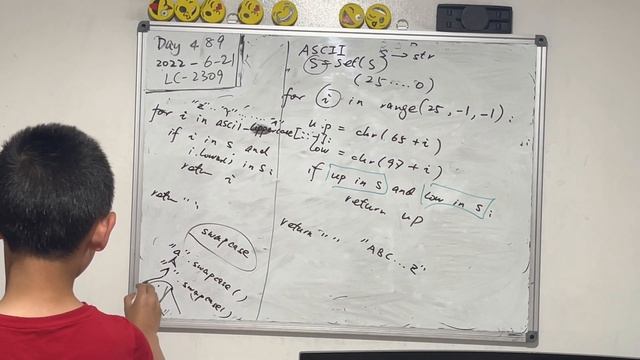 Day 489
2022-6-21
LC-2309
"Z" "Y" ... "A"
for i in ascii_uppercase[::-1]:
if i in s and
i.lower() in s:
return i
return "";
swapcase
"a".swapcase()
"A".swapcase()
ASCII s → str
S = set(s)
(25 .... 0)
for i in range(25, -1, -1):
up = chr(65+i)
low = chr(97+i)
if up in S and low in S:
return up
return "";
"ABC...Z"